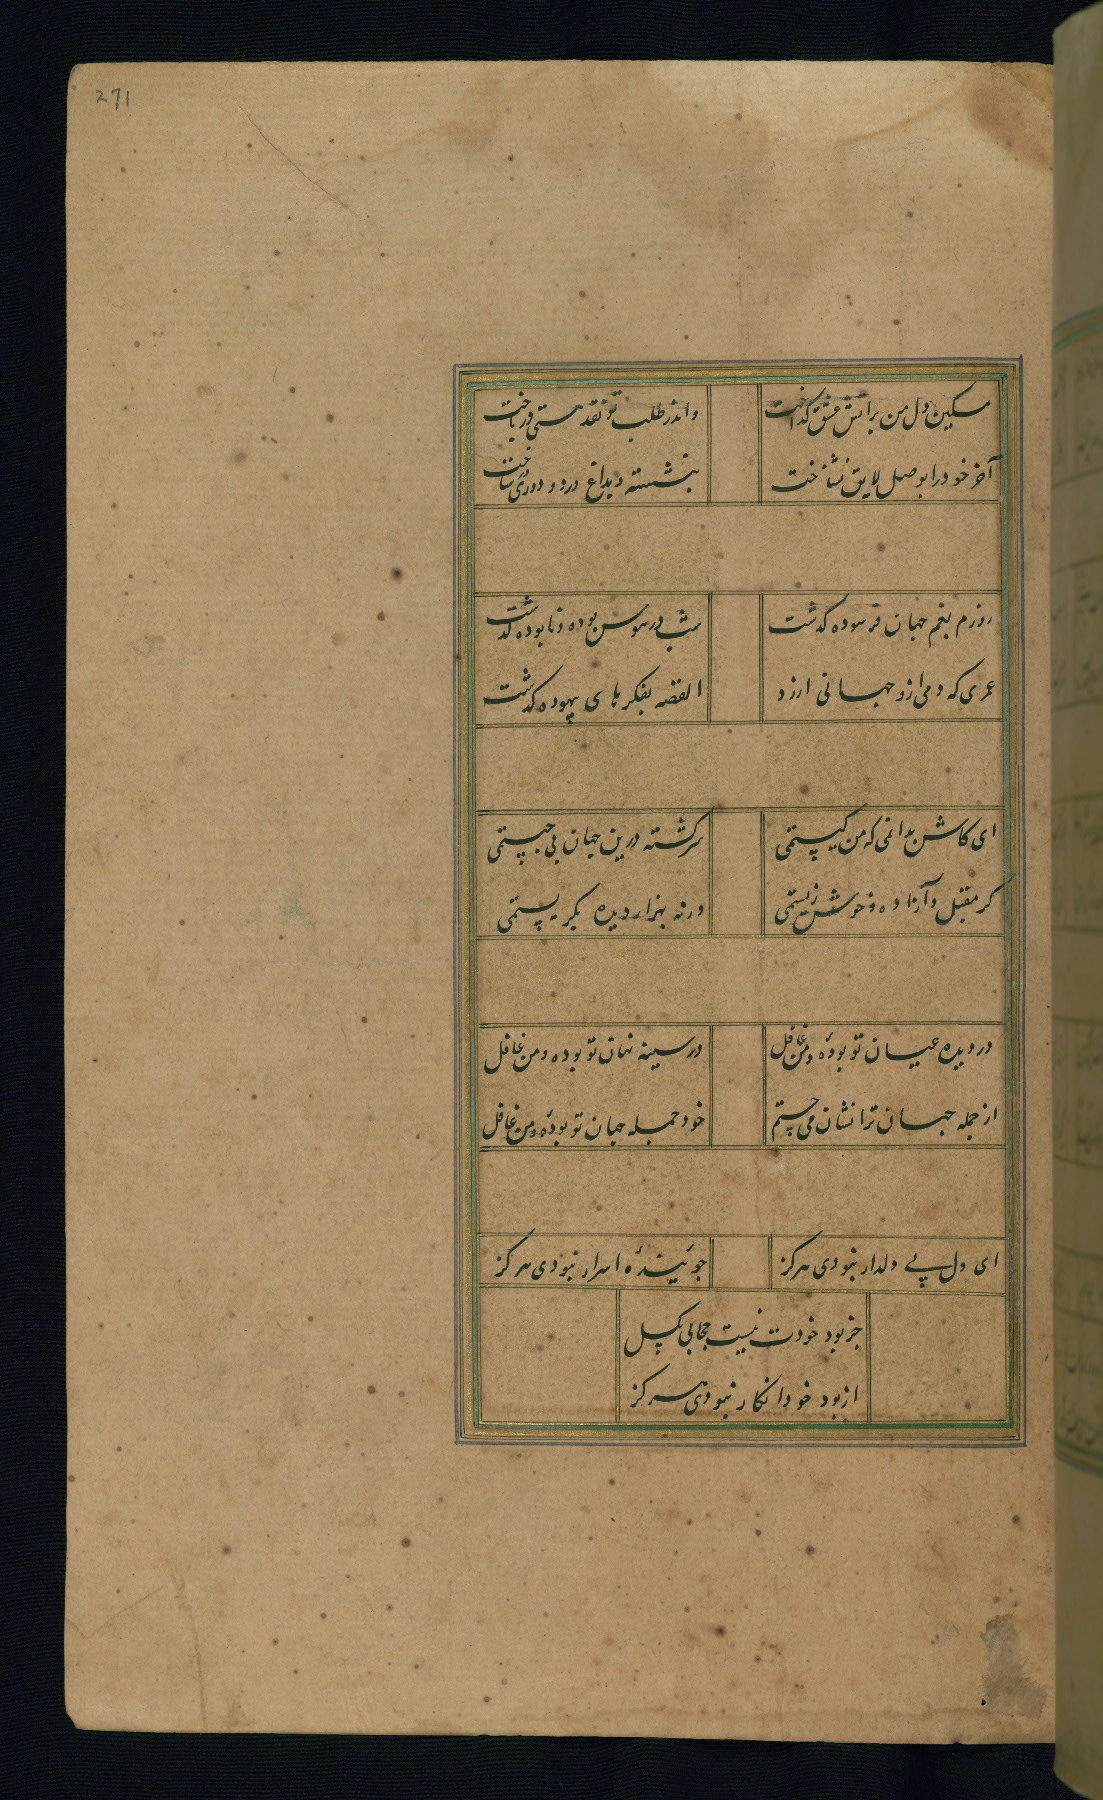 271
مسکین دل من بر آتش عشق گداخت
واندر طلب تو نقد هستی درباخت
آخر خود را بوصل لایق نشناخت
بنشست و بداغ درد و دوری ساخت
روزم بغم جهان فرسوده گذشت
شب در هوس بوده و نابوده گذشت
عمری که دمی ازو جهانی ارزد
القصه بفکرهای بیهوده گذشت
ای کاش بدانمی که من کیستمی
سرگشته درین جهان پی چیستمی
گر مقبلم آزاده و خوش زیستمی
ورنه بهزار دیده بگریستمی
در دیده عیان تو بودهٔ و من غافل
در سینه نهان تو بوده و من غافل
از جمله جهان ترا نشان می جستم
خود جمله جهان تو بودهٔ و من غافل
ای دل پی دلدار نبودی هرگز
جویندهٔ اسرار نبودی هرگز
جز بود خودت نیست حجابی بگسل
از بود خود انکار نبودی هرگز